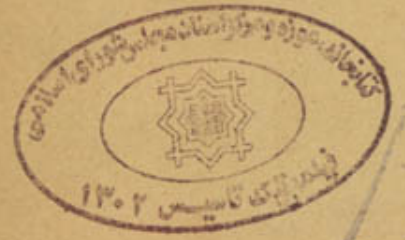 کتابخانه موزه و مرکز اسناد مجلس شورای اسلامی
تاسیس ۱۳۰۲